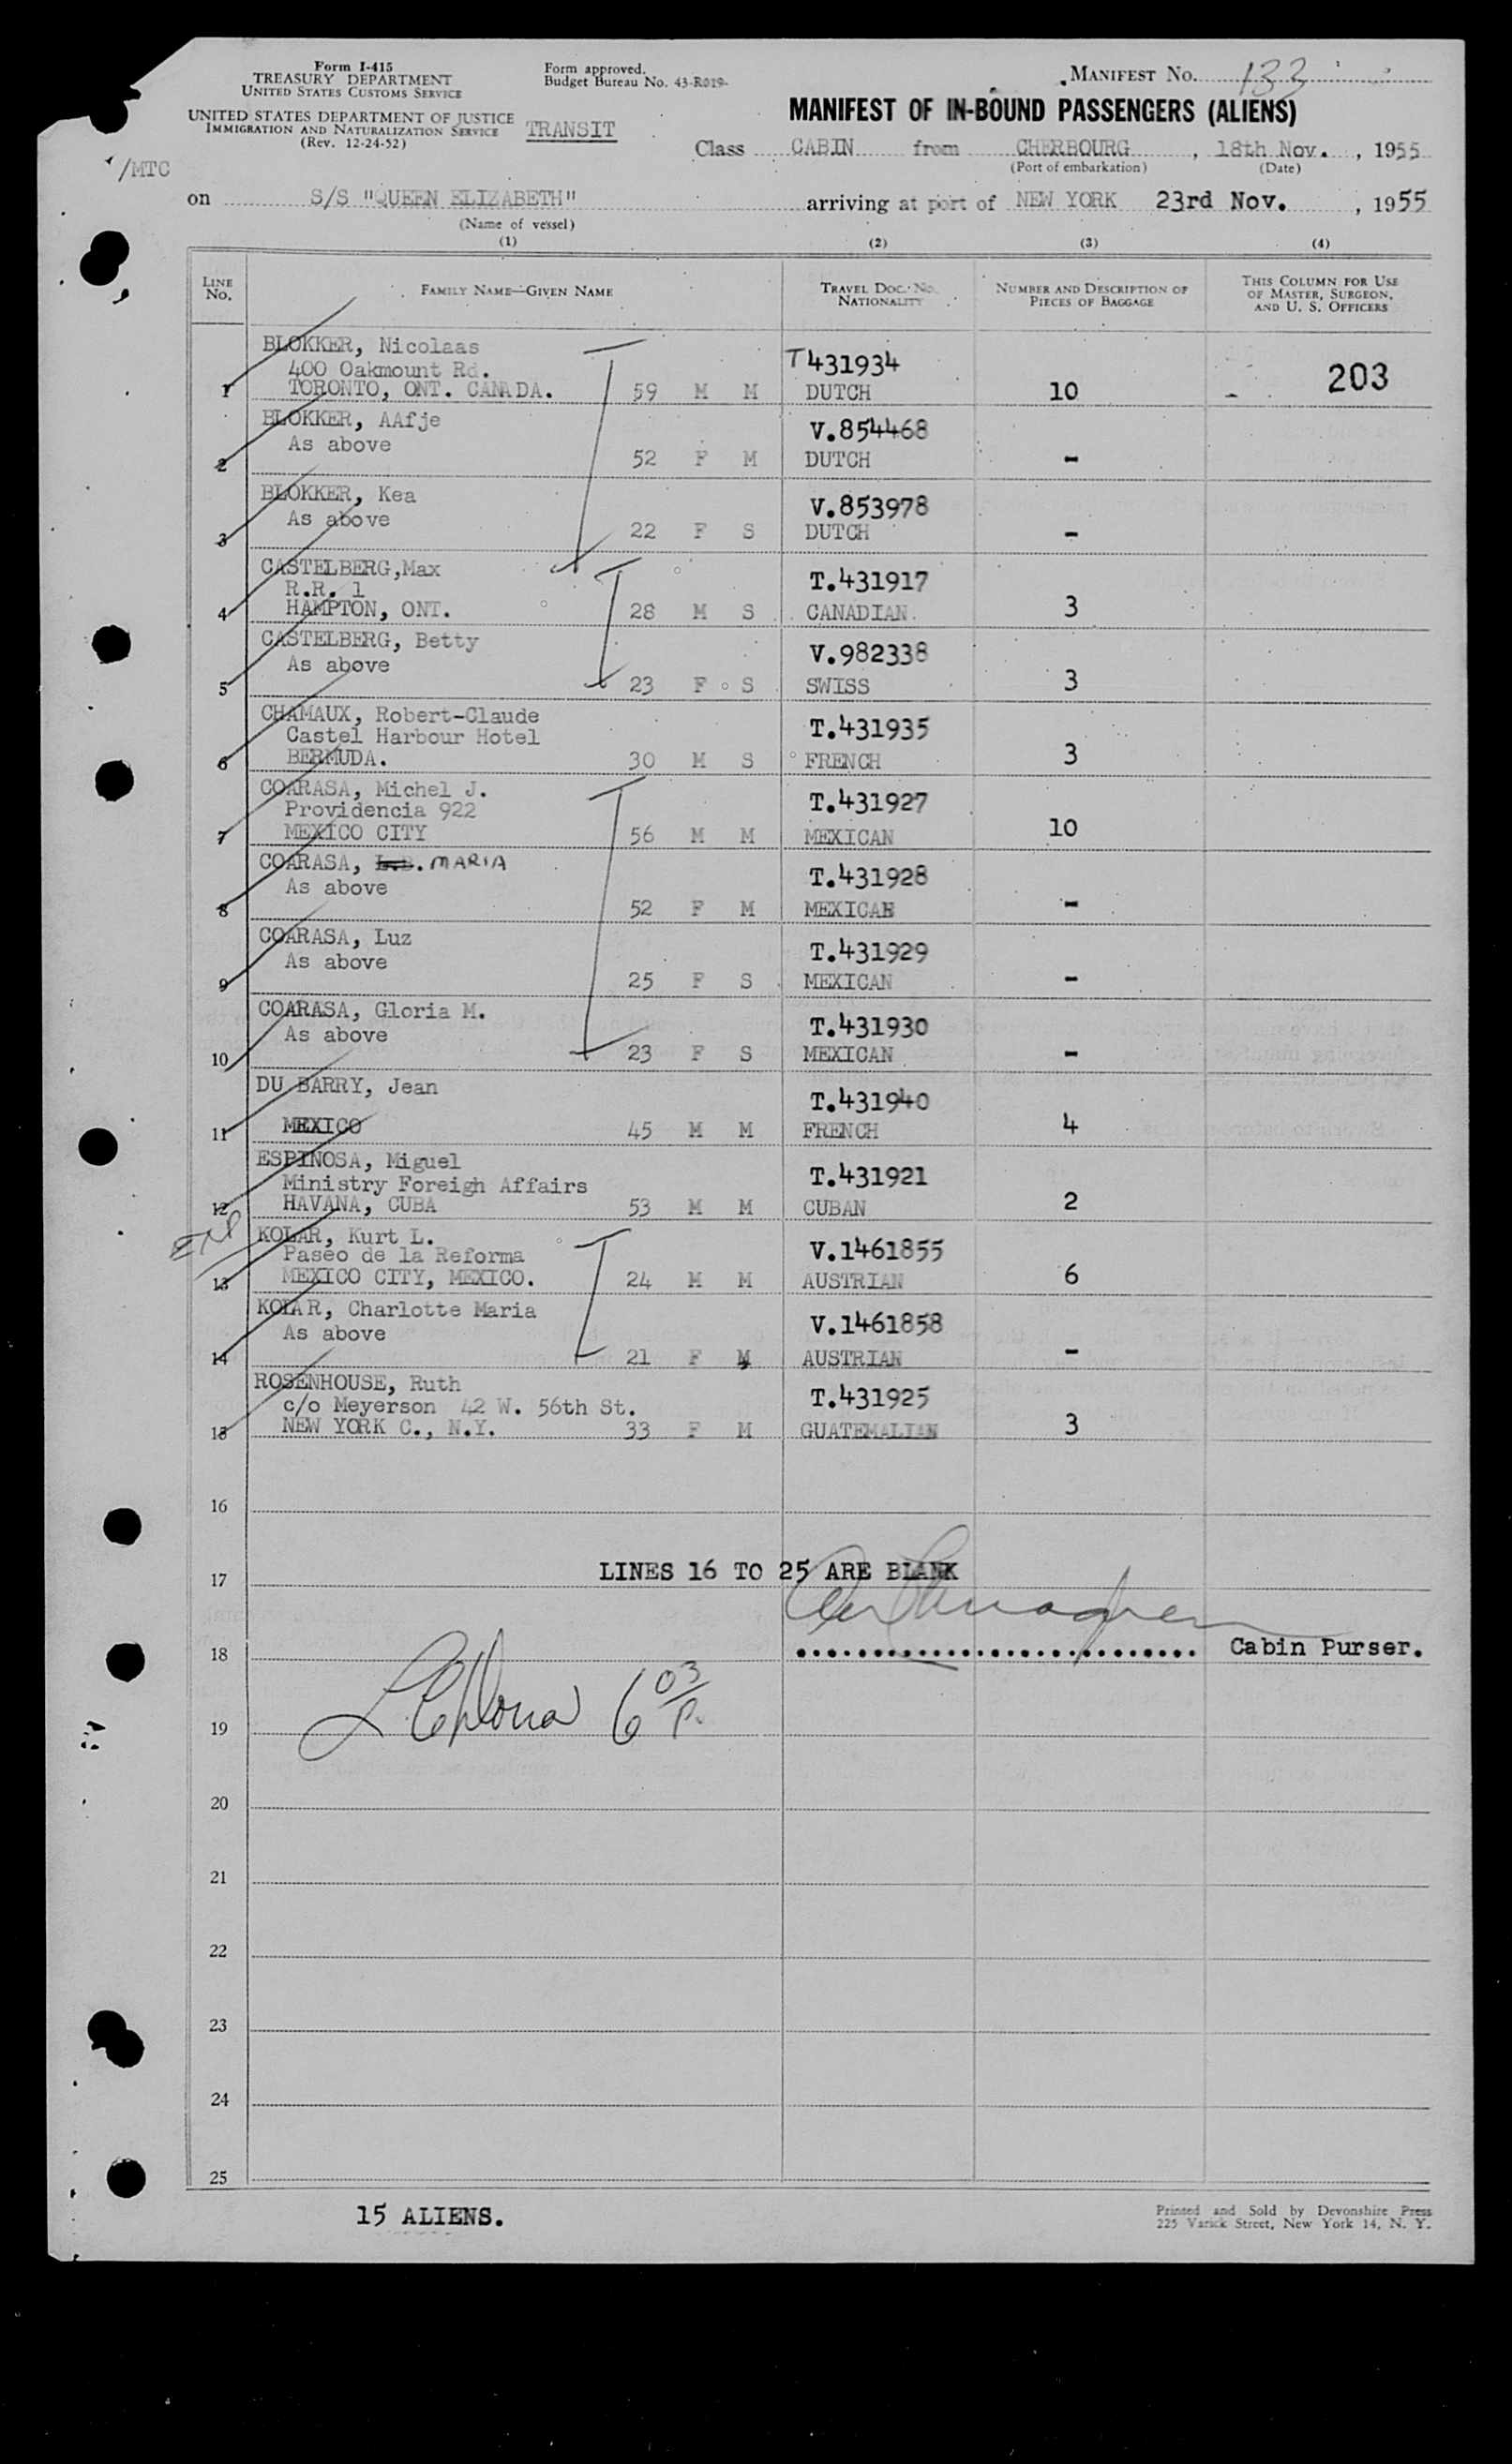 Form I-415
TREASURY DEPARTMENT
UNITED STATES CUSTOMS SERVICE
UNITED STATES DEPARTMENT OF JUSTICE
IMMIGRATION AND NATURALIZATION SERVICE
(Rev. 12-24-52)
TRANSIT
Form approved.
Budget Bureau No. 43-R019-
MANIFEST No. 133
MANIFEST OF IN-BOUND PASSENGERS (ALIENS)
Class CABIN from CHERBOURG, 18th Nov., 1955
(Port of embarkation) (Date)
/MTC
on S/S "QUEEN ELIZABETH" arriving at port of NEW YORK 23rd Nov., 1955
(Name of vessel)
(1) (2) (3) (4)
LINE No. FAMILY NAME—GIVEN NAME TRAVEL DOC. No. NATIONALITY NUMBER AND DESCRIPTION OF PIECES OF BAGGAGE THIS COLUMN FOR USE OF MASTER, SURGEON, AND U. S. OFFICERS
BLOKKER, Nicolaas T431934
400 Oakmount Rd. 203
1 TORONTO, ONT. CANADA. 59 M M DUTCH 10
BLOKKER, AAfje V.854468
As above
2 52 F M DUTCH -
BLOKKER, Kea V.853978
As above
3 22 F S DUTCH -
CASTELBERG,Max T.431917
R.R. 1
4 HAMPTON, ONT. 28 M S CANADIAN. 3
CASTELBERG, Betty V.982338
As above
5 23 F S SWISS 3
CHAMAUX, Robert-Claude T.431935
Castel Harbour Hotel
6 BERMUDA. 30 M S FRENCH 3
COARASA, Michel J. T.431927
Providencia 922
7 MEXICO CITY 56 M M MEXICAN 10
COARASA, MARIA T.431928
As above
8 52 F M MEXICAN -
COARASA, Luz T.431929
As above
9 25 F S MEXICAN -
COARASA, Gloria M. T.431930
As above
10 23 F S MEXICAN -
DU BARRY, Jean T.431940
11 MEXICO 45 M M FRENCH 4
ESPINOSA, Miguel T.431921
Ministry Foreigh Affairs
12 HAVANA, CUBA 53 M M CUBAN 2
KOLAR, Kurt L. V.1461855
Paseo de la Reforma
13 MEXICO CITY, MEXICO. 24 M M AUSTRIAN 6
KOLAR, Charlotte Maria V.1461858
As above
14 21 F M AUSTRIAN -
ROSENHOUSE, Ruth T.431925
c/o Meyerson 42 W. 56th St.
15 NEW YORK C., N.Y. 33 F M GUATEMALIAN 3
16
LINES 16 TO 25 ARE BLANK
17
18 Cabin Purser.
6 03/P.
19
20
21
22
23
24
25
15 ALIENS.
Printed and Sold by Devonshire Press
225 Varick Street, New York 14, N. Y.